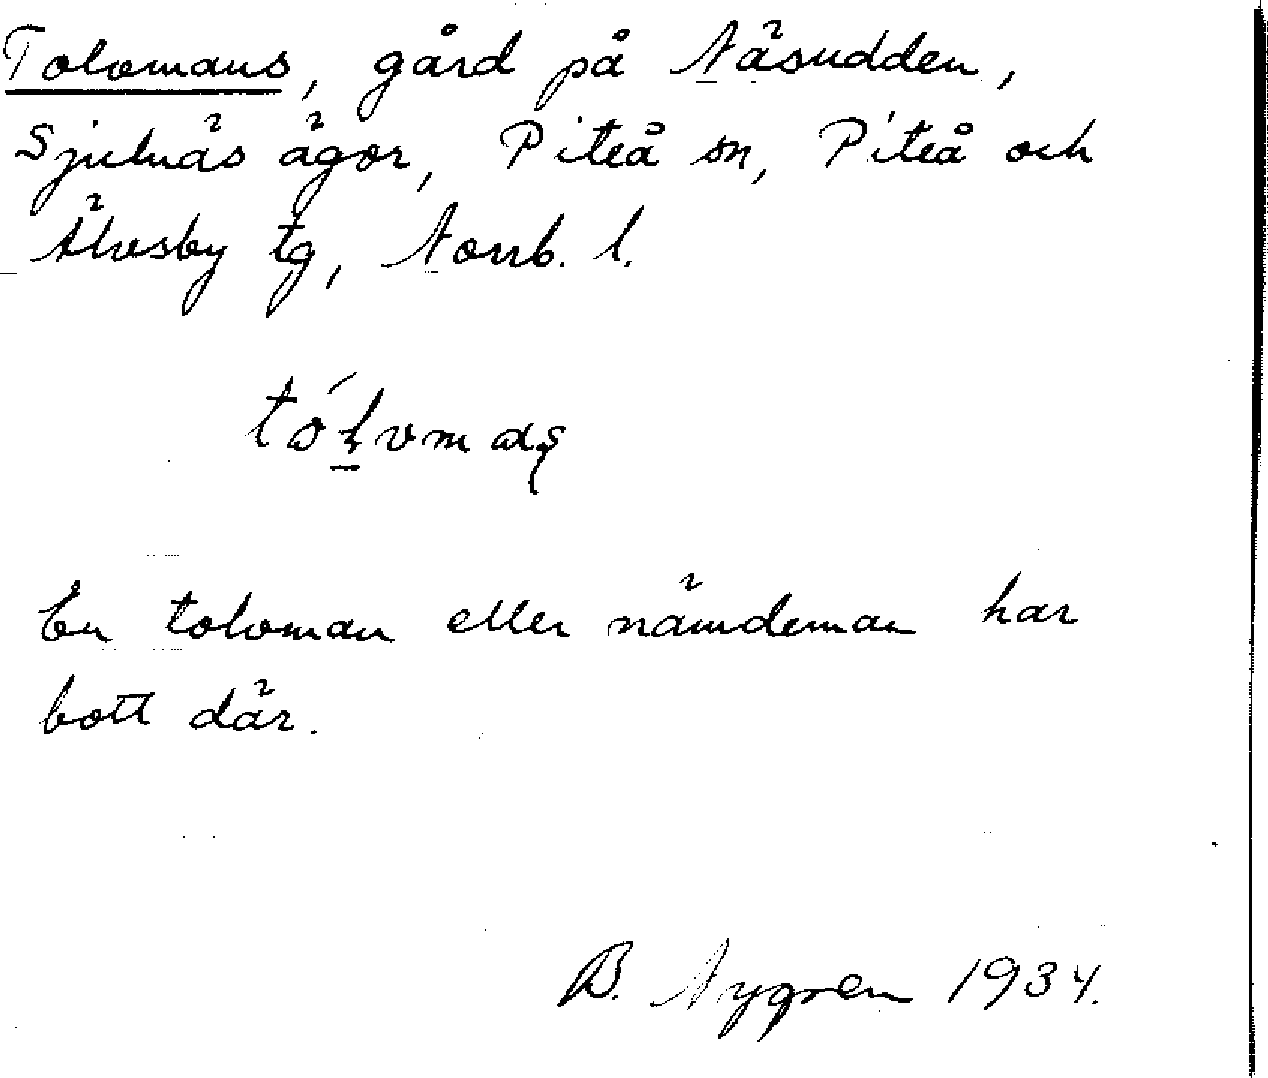 Tolvmans, gård på Näsudden,
Sjulnäs ägor, Piteå sn, Piteå och
Älvsby tg, Norrb. l.
En tolvman eller nämdeman har
bott där.
B. Nygren 1934.